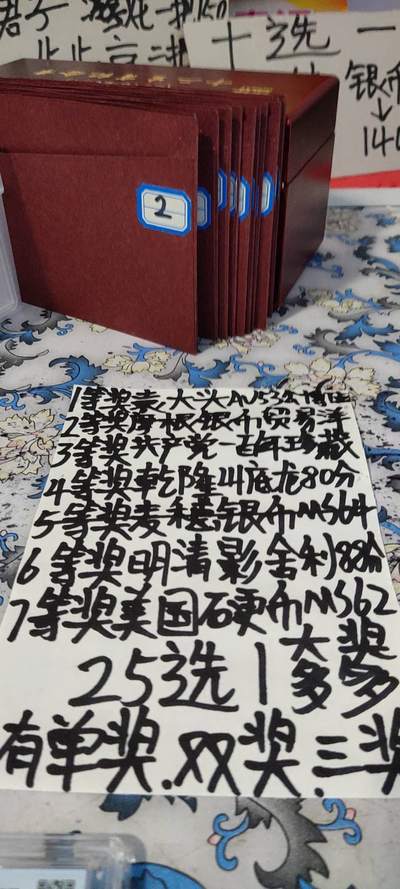 十选一
银币
↓
140
2
1等奖袁大头AU53公博
2等奖摩根银币贸易洋
3等奖共产党一百年珍藏
4等奖乾隆山底龙80分
5等奖麦穗银币MS64
6等奖明清影舍利88分
7等奖美国硬币MS62
25选1大奖多多
有单奖.双奖.三奖